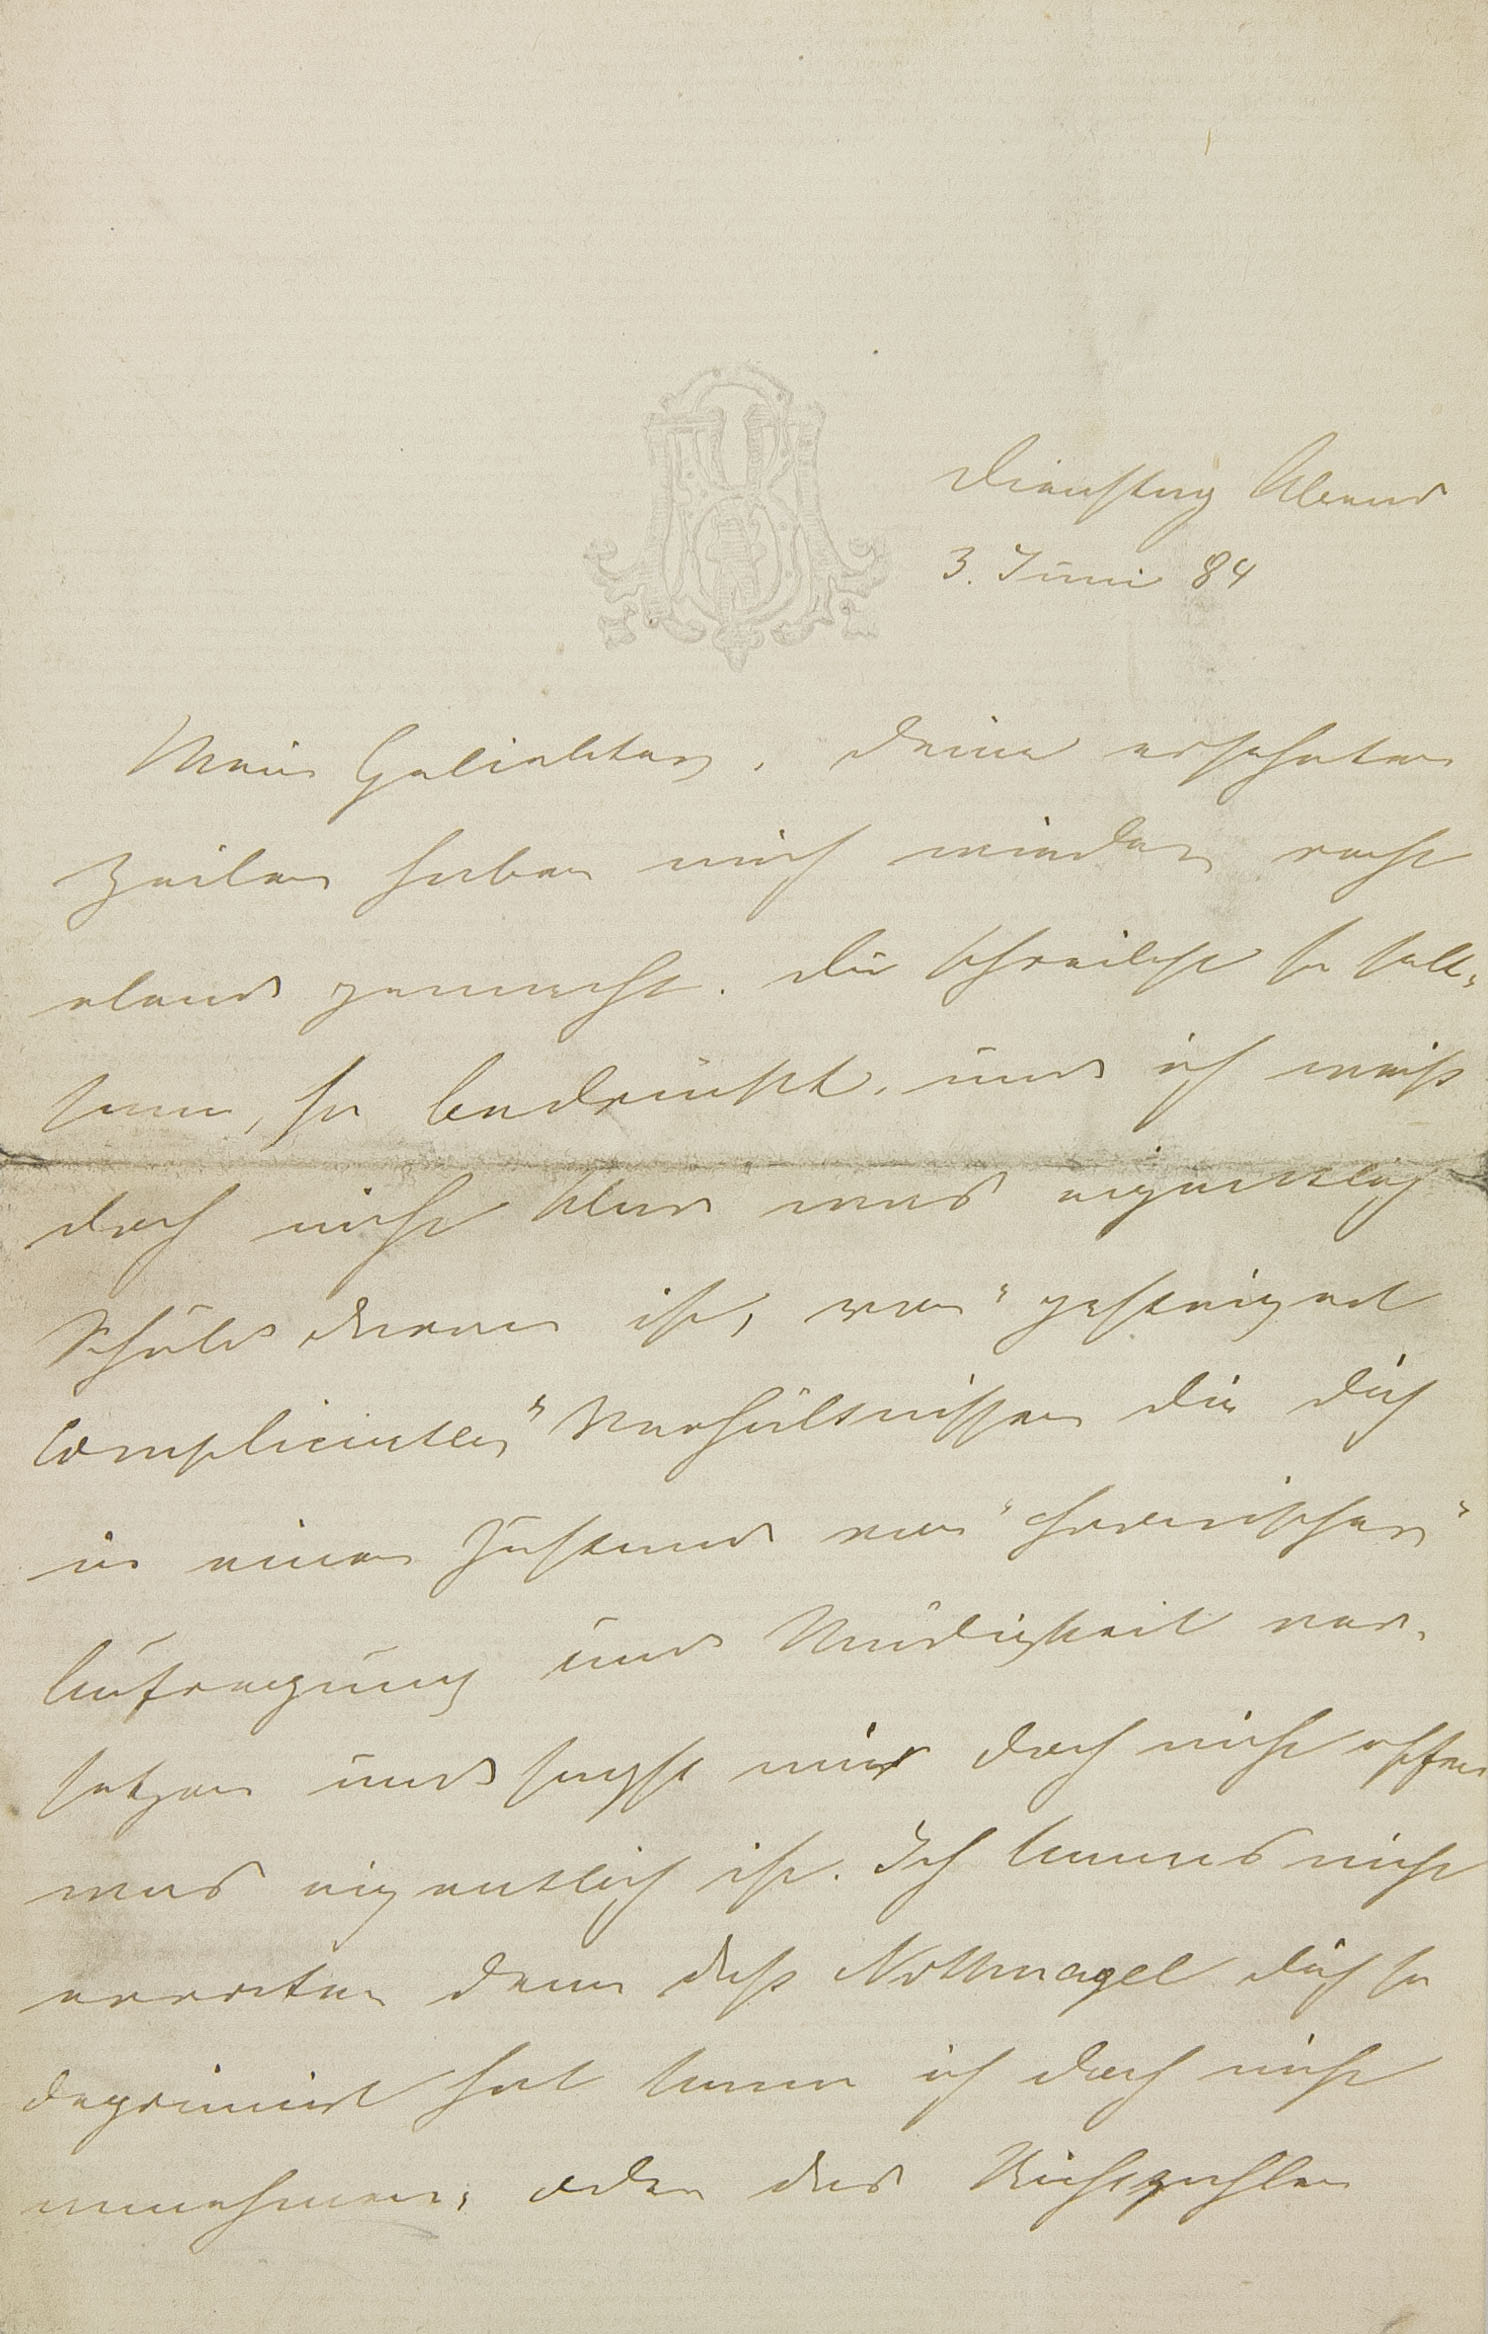 Dienstag Abend
3. Juni 84
Mein Geliebter, Deine ersehnten
Zeilen haben mich wieder recht
elend gemacht. Du schreibst so selt-
sam, so bedrückt, und ich weiß
doch nicht klar was eigentlich
Schuld daran ist, von "gesteigert
complicirten" Verhältnissen die Dich
in einen Zustand von "chronischer"
Aufregung und Müdigkeit ver-
setzen und sagst mir doch nicht offen
was eigentlich ist. Ich kanns nicht
erraten denn daß Nothnagel Dich so
deprimirt hat kann ich doch nicht
annehmen, oder das Nichtzahlen